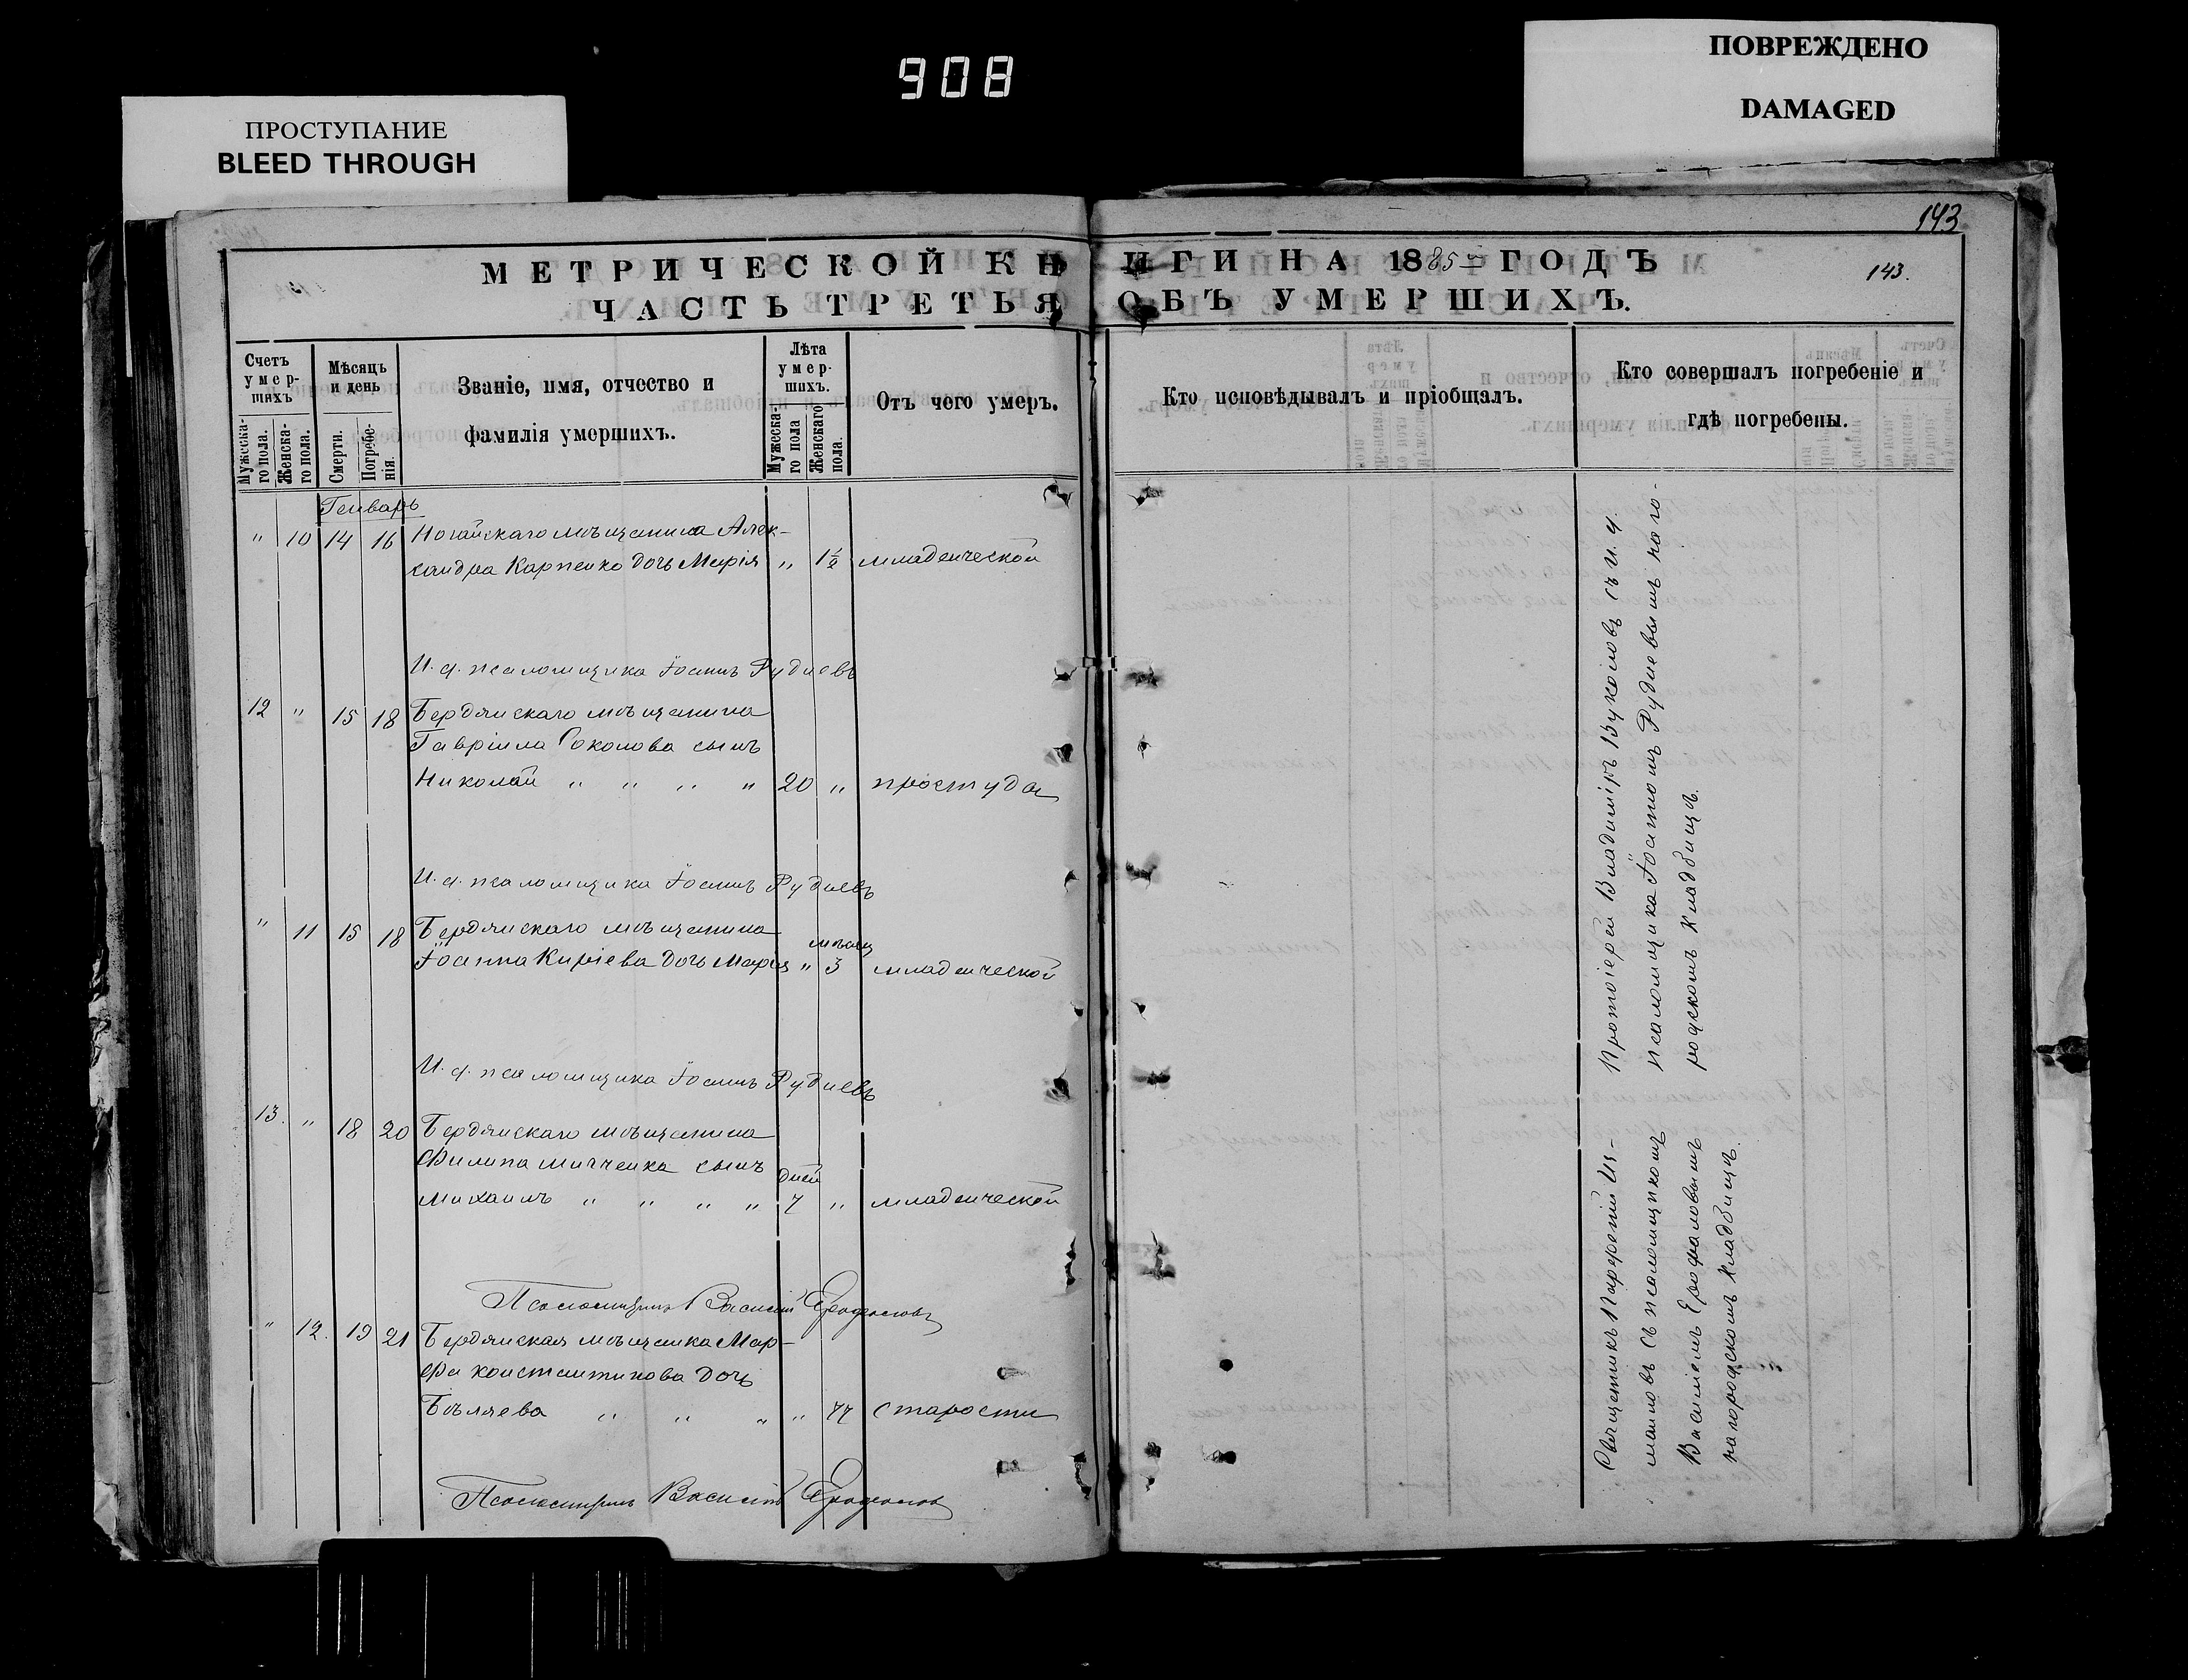 908
ПРОСТУПАНИЕ
BLEED THROUGH
ПОВРЕЖДЕНО
DAMAGED
143
МЕТРИЧЕСКОЙ КНИГИ НА 1885 ГОДЪ
143.
ЧАСТЬ ТРЕТЬЯ ОБЪ УМЕРШИХЪ.
Счетъ умер-шихъ
Мужеска-го пола.
Женска-го пола.
Мѣсяцъ и день
Смерти.
Погребе-нія.
Званіе, имя, отчество и
фамилія умершихъ.
Лѣта умер-шихъ.
Мужеска-го пола
Женскаго пола.
Отъ чего умеръ.
Кто исповѣдывалъ и пріобщалъ.
Кто совершалъ погребеніе и
гдѣ погребены.
Генварь
" 10 14 16 Ногайскаго мѣщанина Алек-
сандра Карпенко дочь Марія " 1½ младенческой
И. д. псаломщика Іоаннъ Рудневъ
12 " 15 18 Бердянскаго мѣщанина
Гавріила Соколова сынъ
Николай " " " " 20 " простуда
И. д. псаломщика Іоаннъ Рудневъ
" 11 15 18 Бердянскаго мѣщанина
мѣсяц
Іоанна Киріева дочь Марія " 3 младенческой
И. д. псаломщика Іоаннъ Рудневъ
13. " 18 20 Бердянскаго мѣщанина
Филипа сынъ
дней
Михаилъ " " " " 7 " младенческой
Псаломщикъ Василій Ерофаловъ
" 12. 19 21 Бердянская мѣщанка Мар-
фа Константинова дочь
Бѣляева " " " " 77 старости
Псаломщикъ Василій Ерофаловъ
Протоіерей Владиміръ Вуколовъ съ и. д.
псаломщика Іоанномъ Рудневымъ на го-
родскомъ кладбищѣ.
Священникъ Парфеній Из-
маиловъ съ псаломщикомъ
Василіемъ Ерофаловымъ
на городскомъ кладбищѣ.